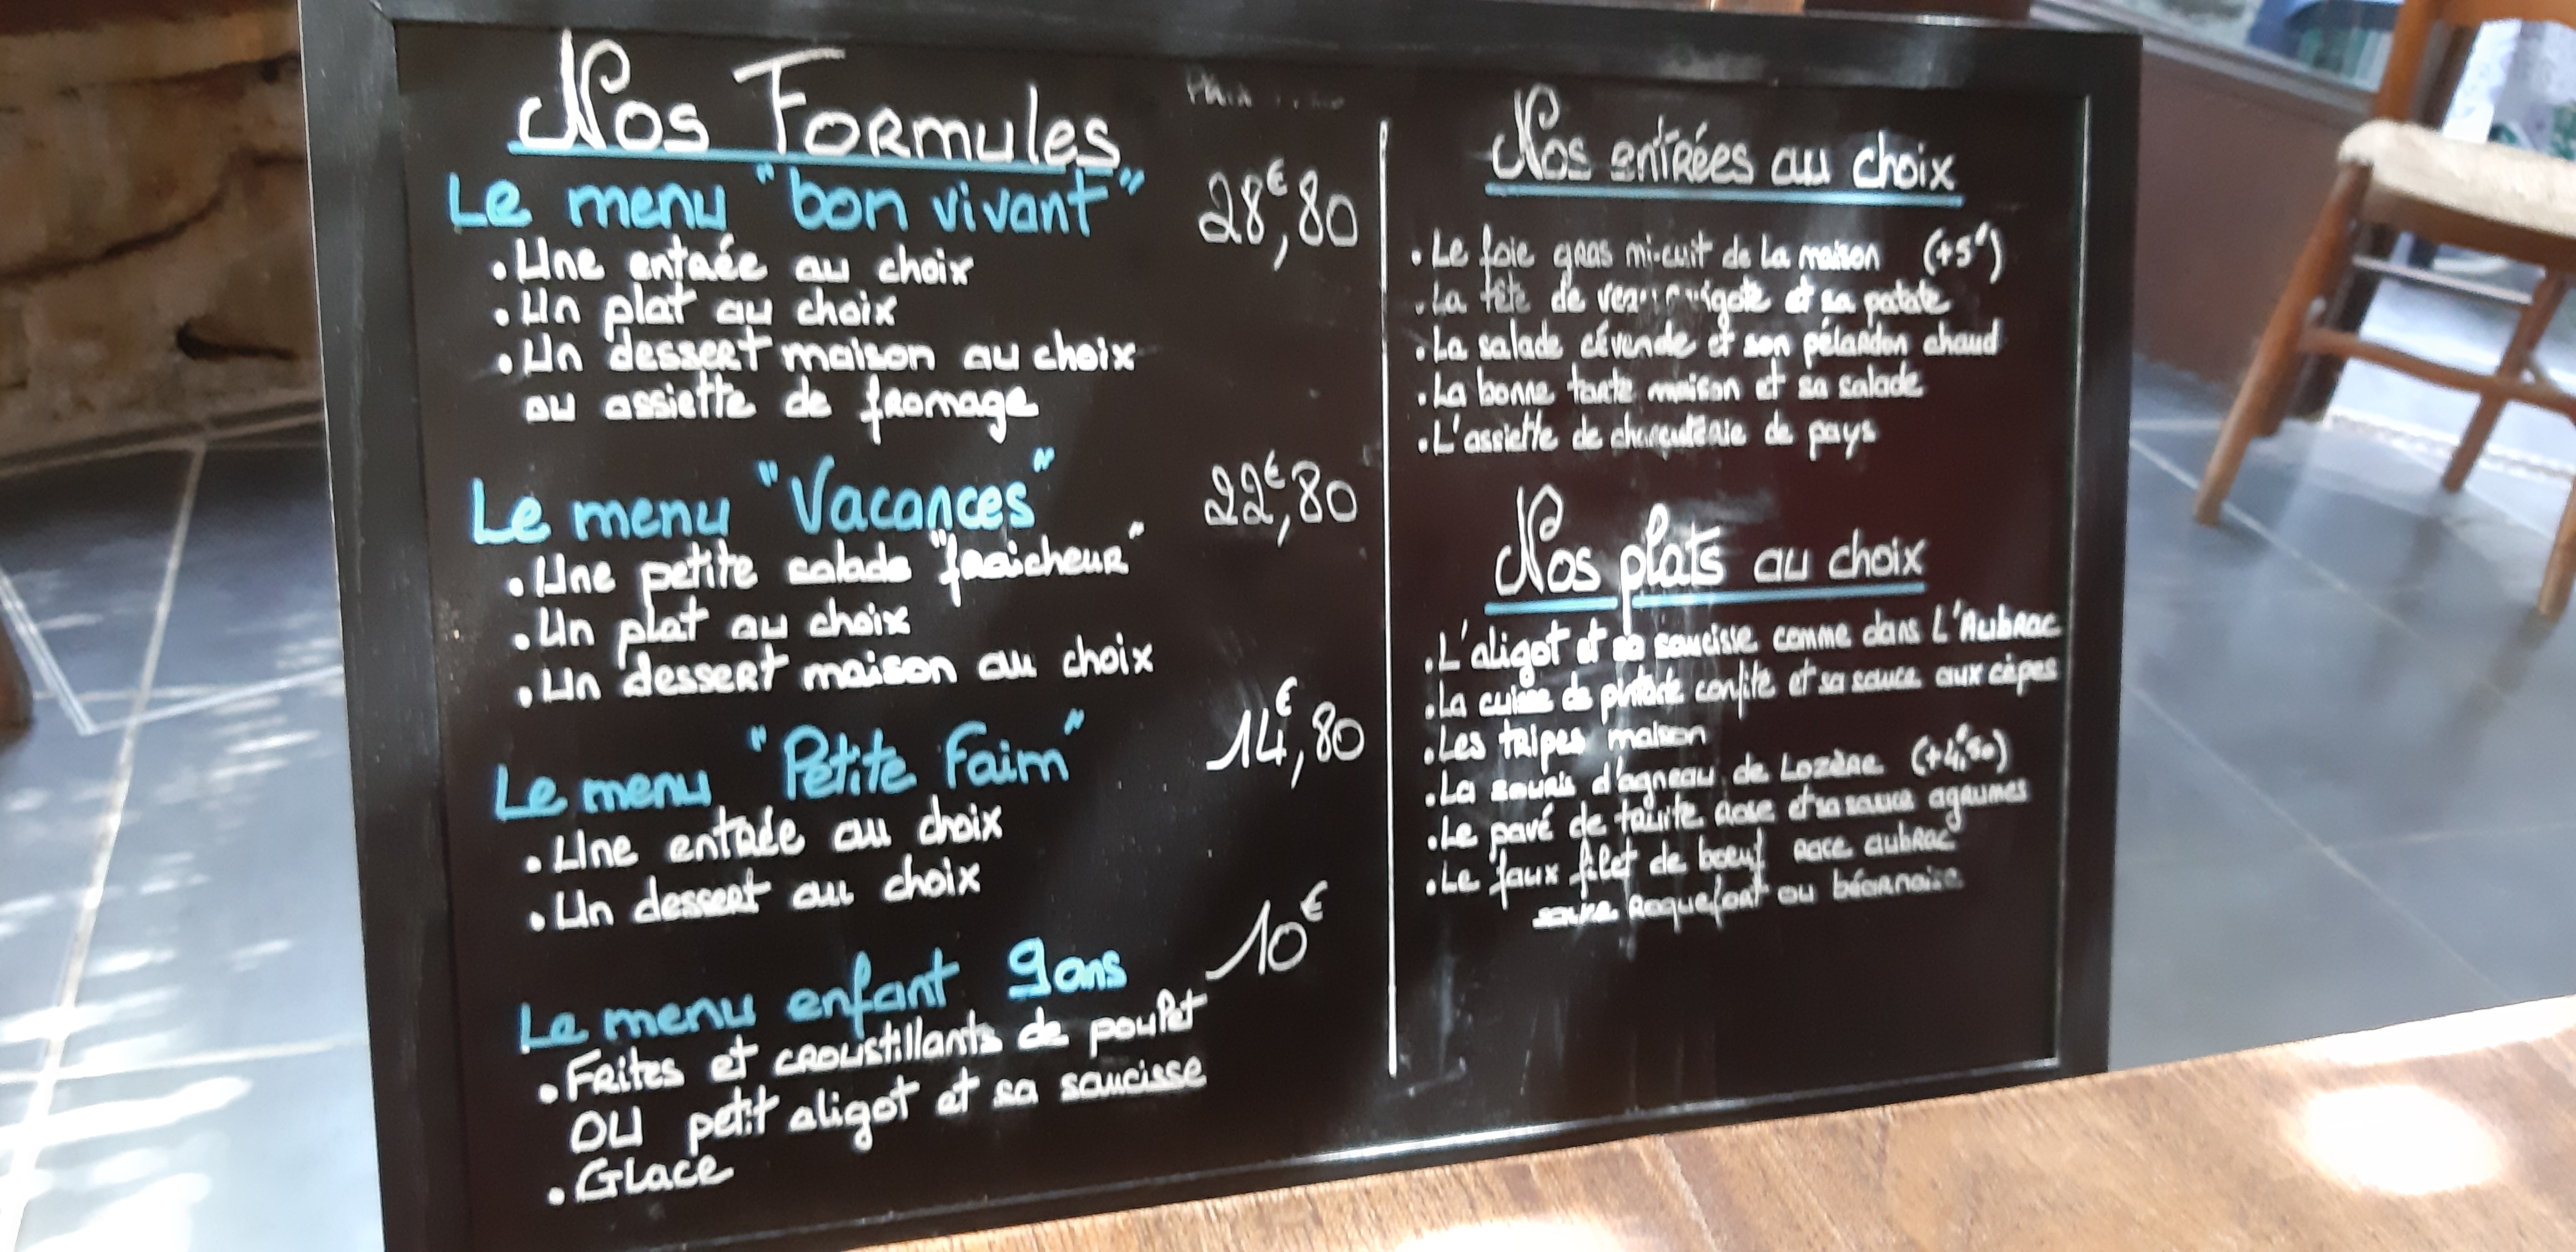 Nos Formules
Le menu "bon vivant" 28€,80
• Une entrée au choix
• Un plat au choix
• Un dessert maison au choix
ou assiette de fromage
Le menu "Vacances" 22€,80
• Une petite salade "fraîcheur"
• Un plat au choix
• Un dessert maison au choix
Le menu "Petite Faim" 14€,80
• Une entrée au choix
• Un dessert au choix
Le menu enfant 9ans 10€
• Frites et croustillants de poulet
OU petit aligot et sa saucisse
• Glace
Nos entrées au choix
• Le foie gras mi-cuit de la maison (+5€)
• La tête de et sa patate
• La salade cévenole et son pélardon chaud
• La bonne tarte maison et sa salade
• L'assiette de charcuterie de pays
Nos plats au choix
• L'aligot et sa saucisse comme dans L'Aubrac
• La cuisse de pintade confite et sa sauce aux cèpes
• Les tripes maison
• La souris d'agneau de Lozère (+4€,50)
• Le pavé de truite rose et sa sauce agrumes
• Le faux filet de boeuf race aubrac
sauce Roquefort ou béarnaise